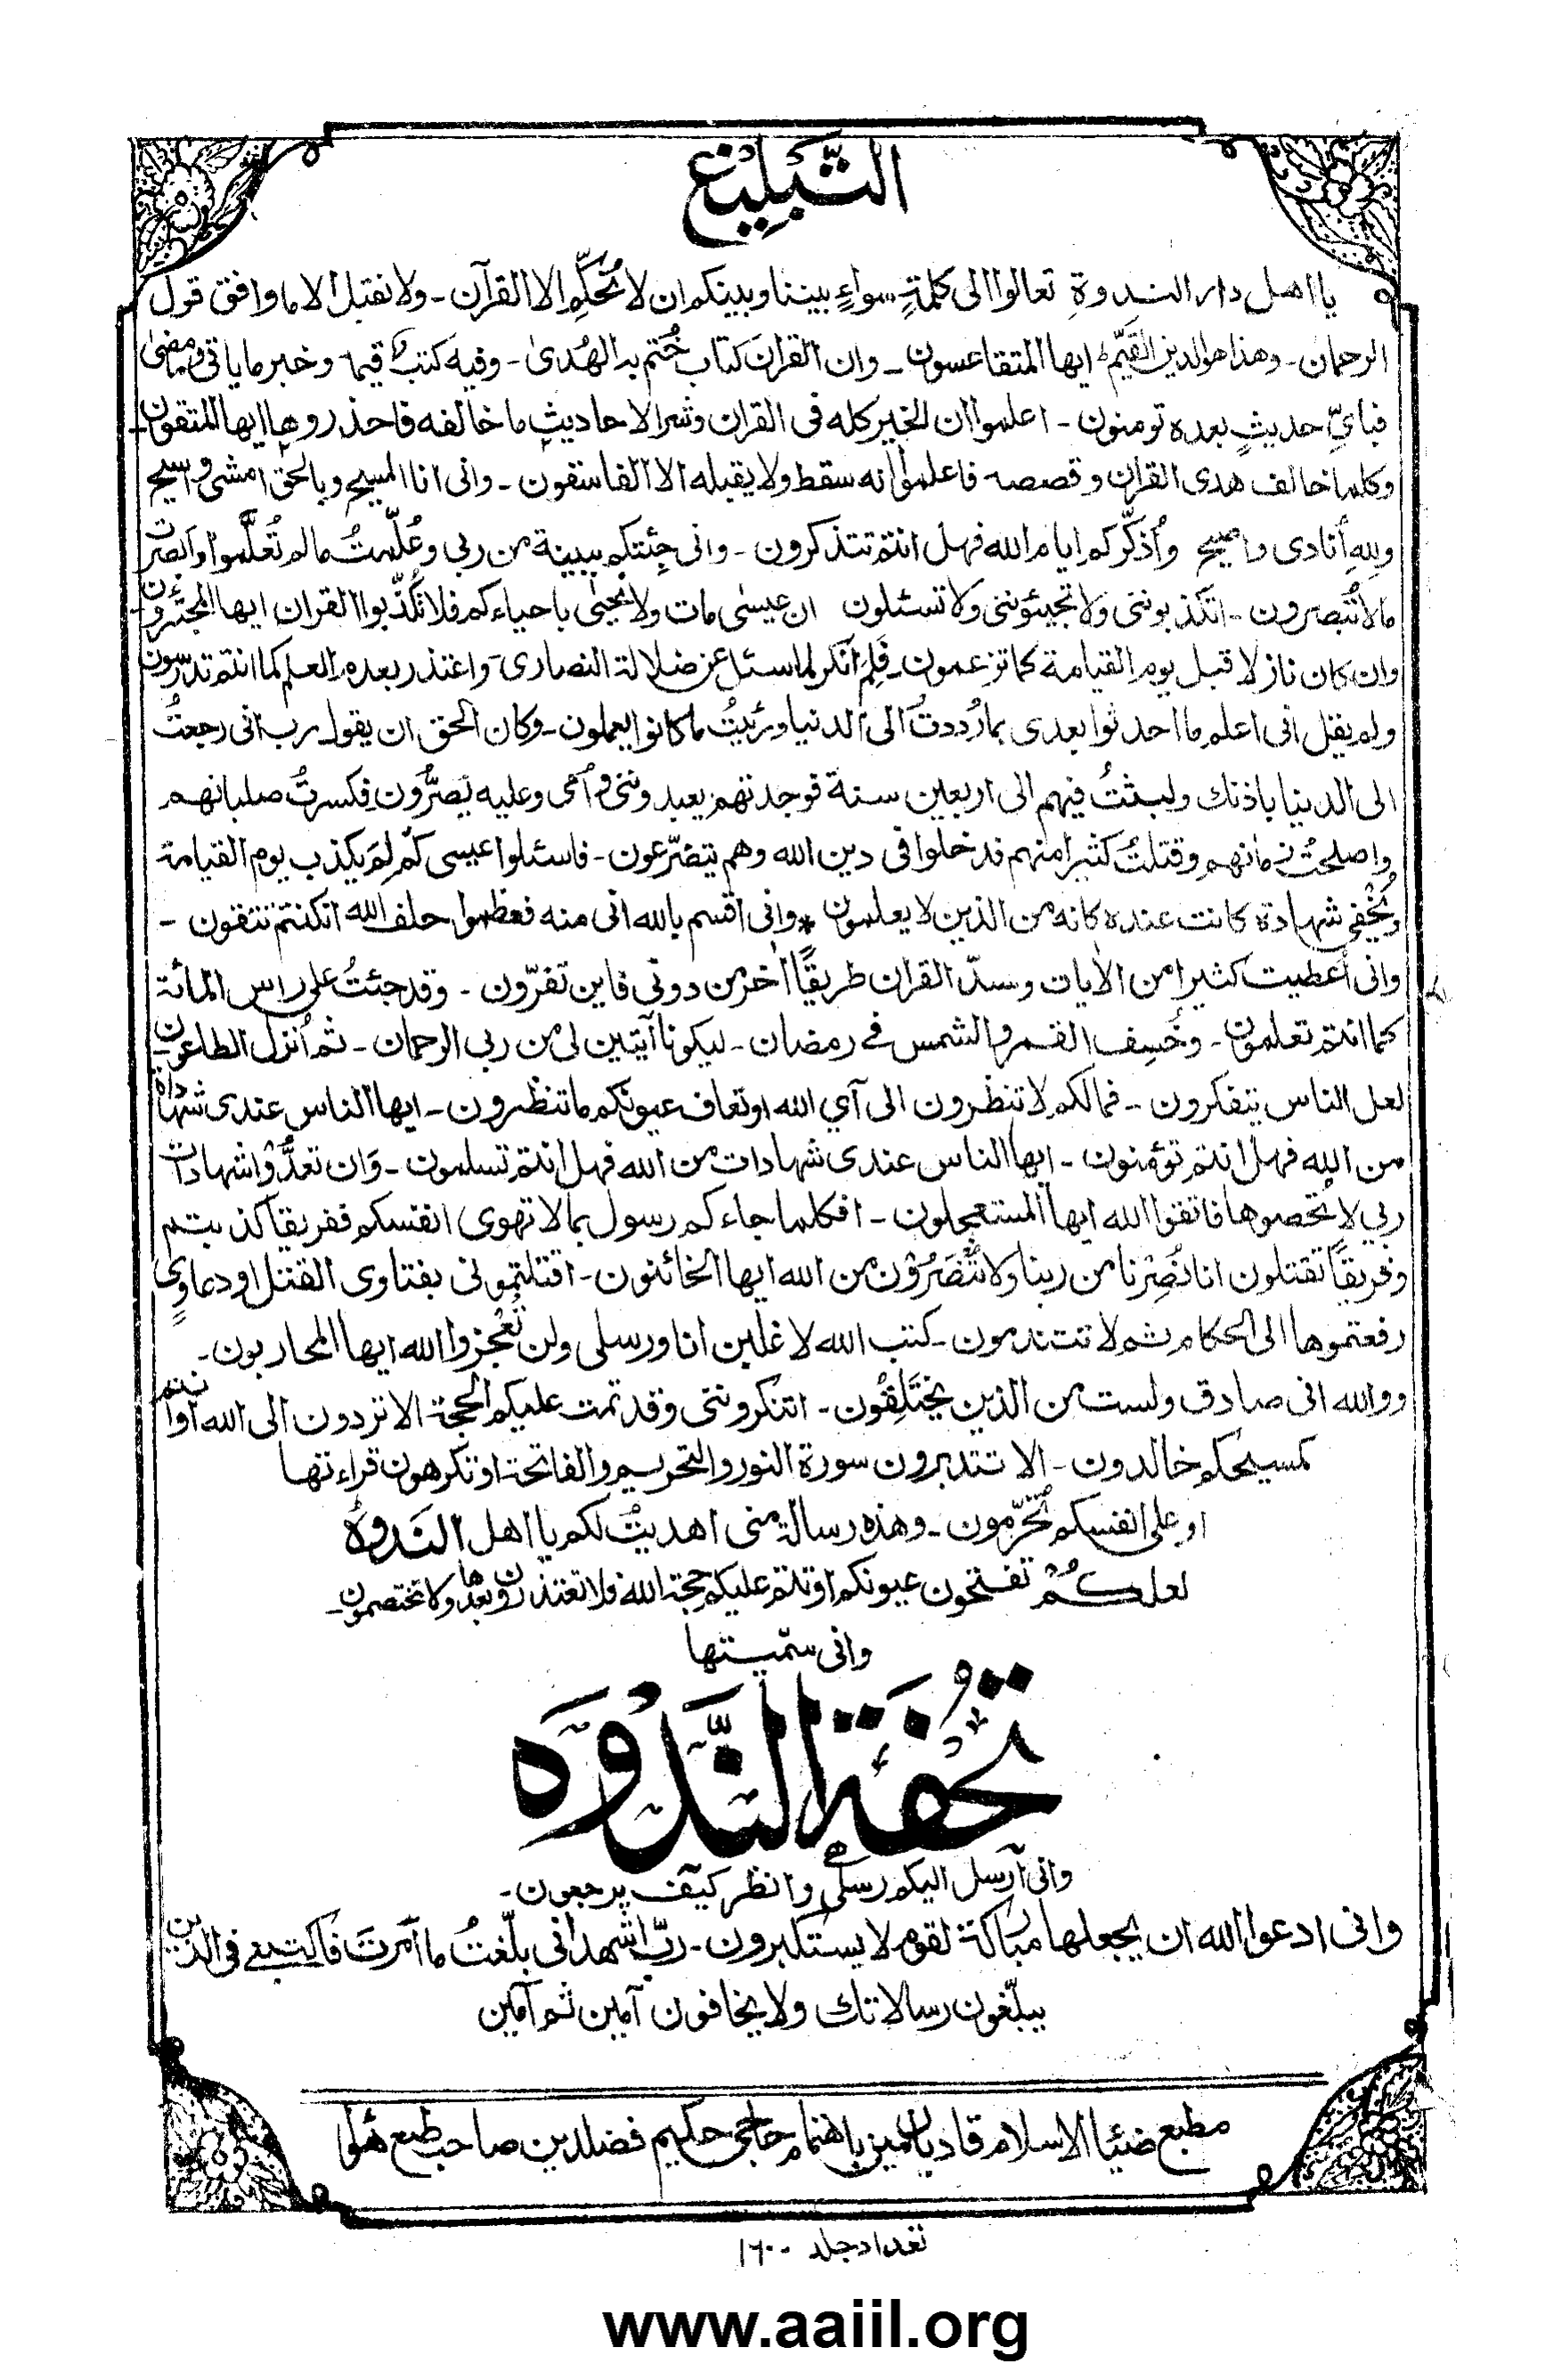 التَّبْلِيْغ
يا اهل دار الندوةِ تعالوا الى كلمةٍ سواءٍ بيننا وبينكم ان لا نُحكِّم الا القرآن۔ ولا نقبل الا ما وافق قول
الرحمان۔ وهذا هو الدين القَيِّم ايها المتقاعسون۔ وان القرانَ كتاب خُتم به الهُدىٰ۔ وفيه كتب قيمة وخبر ما ياتى وما مضىٰ
فبأيّ حديثٍ بعده تومنون۔ اعلموا ان الخير كله فى القران وشر الاحاديث ما خالفه فاحذروها ايها المتقون۔
وكلما خالف هدى القران وقصصه فاعلموا انه سقط ولا يقبله الا الفاسقون۔ وانى انا المسيح وبالحق امشى واسيح
وللهِ اُنادى واصيح وأُذكّركم ايام الله فهل انتم تتذكرون۔ وانى جِئتكم ببينة من ربى وعُلّمتُ ما لم تُعلَّموا واَبصرت
ما لا تُبصرون۔ اتكذبوننى ولا تجيئوننى ولا تسئلون ان عيسىٰ مات ولا يحيىٰ باحياءكم فلا تكذّبوا القران ايها المجترءون۔
وان كان نازلا قبل يوم القيامة كما تزعمون۔ فَلِمَ انكر لما سئل عن ضلالة النصارى واعتذر بعدم العلم كما انتم تدرسون
ولم يقل انى اعلم ما احدثوا بعدى بما رُددتُ الى الدنيا ورئيتُ ما كانوا يعملون۔ وكان الحق ان يقول رب انى رجعتُ
الى الدنيا باذنك ولبثتُ فيهم الى اربعين سنة فوجدتهم يعبدوننى وأمى وعليه يُصرُّون فكسرتُ صلبانهم
واصلحتُ زمانهم وقتلتُ كثيرا منهم فدخلوا فى دين الله وهم يتضرّعون۔ فاسئلوا عيسى كم لِمَ يكذب يوم القيامة
ويُخْفى شهادة كانت عنده كانه من الذين لا يعلمون * وانى اقسم بالله انى منه فعظموا حلف الله انكنتم تتقون۔
وانى اُعطيت كثيرا من الاٰيات وسدّ القران طريقًا اٰخر من دونى فاين تفرّون۔ وقد جئتُ على راس المائة
كما انتم تعلمون۔ وخُسِف القمر والشمس فى رمضان۔ ليكونا آيتين لى من ربى الرحمان۔ ثم اُنزل الطاعون۔
لعل الناس يتفكرون۔ فمالكم لا تنظرون الى آي الله او تعاف عيونكم ما تنظرون۔ ايها الناس عندى شهادة
من الله فهل انتم تؤمنون۔ ايها الناس عندى شهادات من الله فهل انتم تسلمون۔ وَان تعدُّوا شهادات
ربى لا تُحصوها فاتقوا الله ايها المستعجلون۔ افكلما جاءكم رسول بما لا تهوى انفسكم ففريقا كذبتم
وفريقاً تقتلون انا نُصِرْنا من ربنا ولا تُنْصَرُوْن من الله ايها الخائنون۔ اقتلتمونى بفتاوى القتل او دعاوٍى
رفعتموها الى الحكام ثم لا تتندمون۔ كتب الله لاغلبن انا ورسلى ولن تُعْجزوا الله ايها المحاربون۔
ووالله انى صادق ولست من الذين يختَلِقُون۔ اتنكروننى وقد تمت عليكم الحجة الا تردون الى الله او انتم
كمسيحكم خالدون۔ الا تتدبرون سورة النور والتحريم والفاتحة او تكرهون قراءتها
او على انفسكم تُحَرِّمون۔ وهذه رسالة منى اهديتُ لكم يا اهل النَدوة
لعلكُمْ تفتحون عيونكم او تتم عليكم حجة الله فلا تعتذرون بعدها ولا تختصمون۔
وانى سمّيتها
تُحْفَةُ النَّدْوَه
وانى اُرسل اليكم رسلى وانظر كيف يرجعون۔
وانى ادعوا الله ان يجعلها مباركة لقوم لا يستكبرون۔ ربّ اشهد انى بلّغتُ ما اُمرتَ فاكتبنى فى الذين
يبلّغون رسالاتك ولا يخافون آمين ثم آمين
مطبع ضیاء الاسلام قادیان میں باہتمام حاجی حکیم فضلدین صاحب طبع ہوا
تعداد جلد ۱۶۰۰
www.aaiil.org